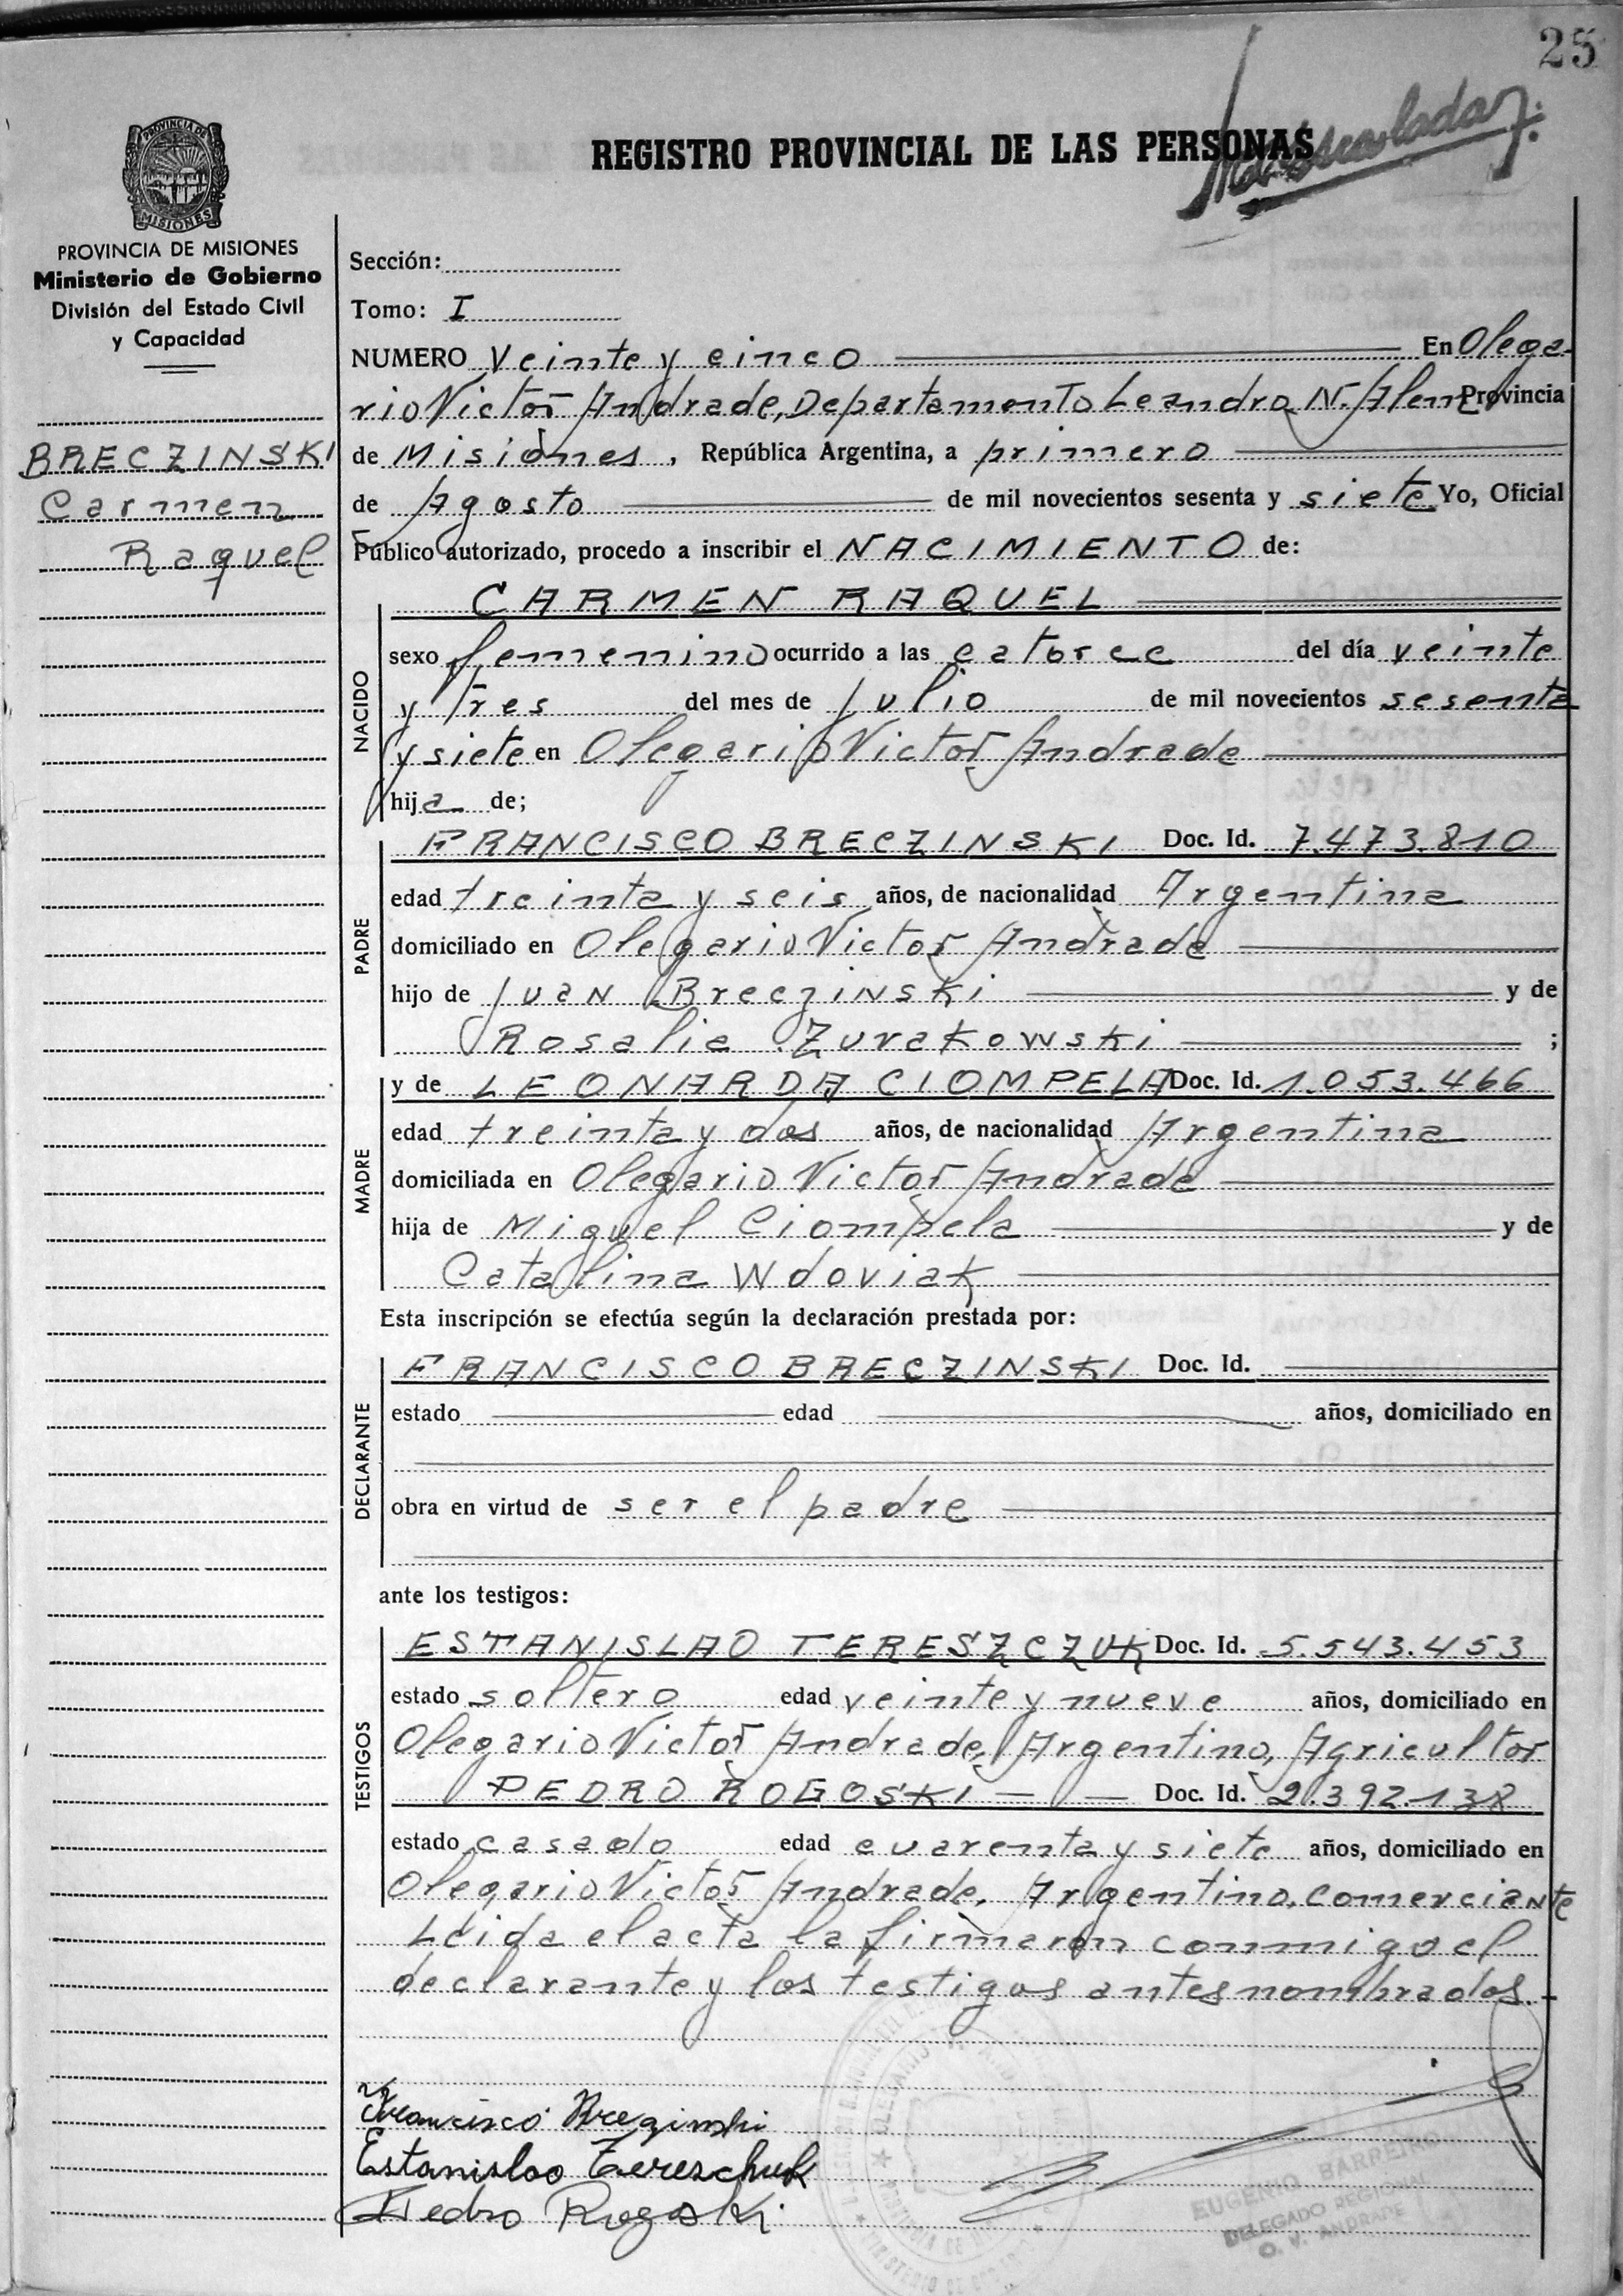 25
REGISTRO PROVINCIAL DE LAS PERSONAS
PROVINCIA DE
MISIONES
PROVINCIA DE MISIONES
Ministerio de Gobierno
División del Estado Civil
y Capacidad
BRECZINSKI
Carmen
Raquel
Sección:
Tomo: I
NUMERO Veinte y cinco En Olega-
rio Victor Andrade, Departamento Leandro N. Alem Provincia
de Misiones, República Argentina, a primero
de Agosto de mil novecientos sesenta y siete Yo, Oficial
Público autorizado, procedo a inscribir el NACIMIENTO de:
CARMEN RAQUEL
NACIDO
sexo femenino ocurrido a las catorce del día veinte
y tres del mes de Julio de mil novecientos sesenta
y siete en Olegario Victor Andrade
hija de;
PADRE
FRANCISCO BRECZINSKI Doc. Id. 7.473.810
edad treinta y seis años, de nacionalidad Argentina
domiciliado en Olegario Victor Andrade
hijo de Juan Breczinski y de
Rosalia Zurakowski ;
MADRE
y de LEONARDA CIOMPELA Doc. Id. 1.053.466
edad treinta y dos años, de nacionalidad Argentina
domiciliada en Olegario Victor Andrade
hija de Miguel Ciompela y de
Catalina Wdoviak
Esta inscripción se efectúa según la declaración prestada por:
DECLARANTE
FRANCISCO BRECZINSKI Doc. Id.
estado edad años, domiciliado en
obra en virtud de ser el padre
ante los testigos:
TESTIGOS
ESTANISLAO TERESZCZUK Doc. Id. 5.543.453
estado soltero edad veinte y nueve años, domiciliado en
Olegario Victor Andrade, Argentino, Agricultor
PEDRO ROGOSKI — — Doc. Id. 2.392.138
estado casado edad cuarenta y siete años, domiciliado en
Olegario Victor Andrade, Argentino, comerciante
Leida el acta la firmaron conmigo el
declarante y los testigos antes nombrados.-
Francisco Breginski
Estanislao Tereszchuk
Pedro Rogoski
EUGENIO BARREIRO
DELEGADO REGIONAL
O. V. ANDRADE